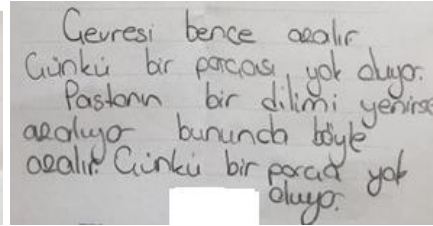 Çevresi bence azalır
Çünkü bir parçası yok oluyor.
Pastanın bir dilimi yenirse
azalıyo bununda böyle
azalır. Çünkü bir parça yok
oluyor.